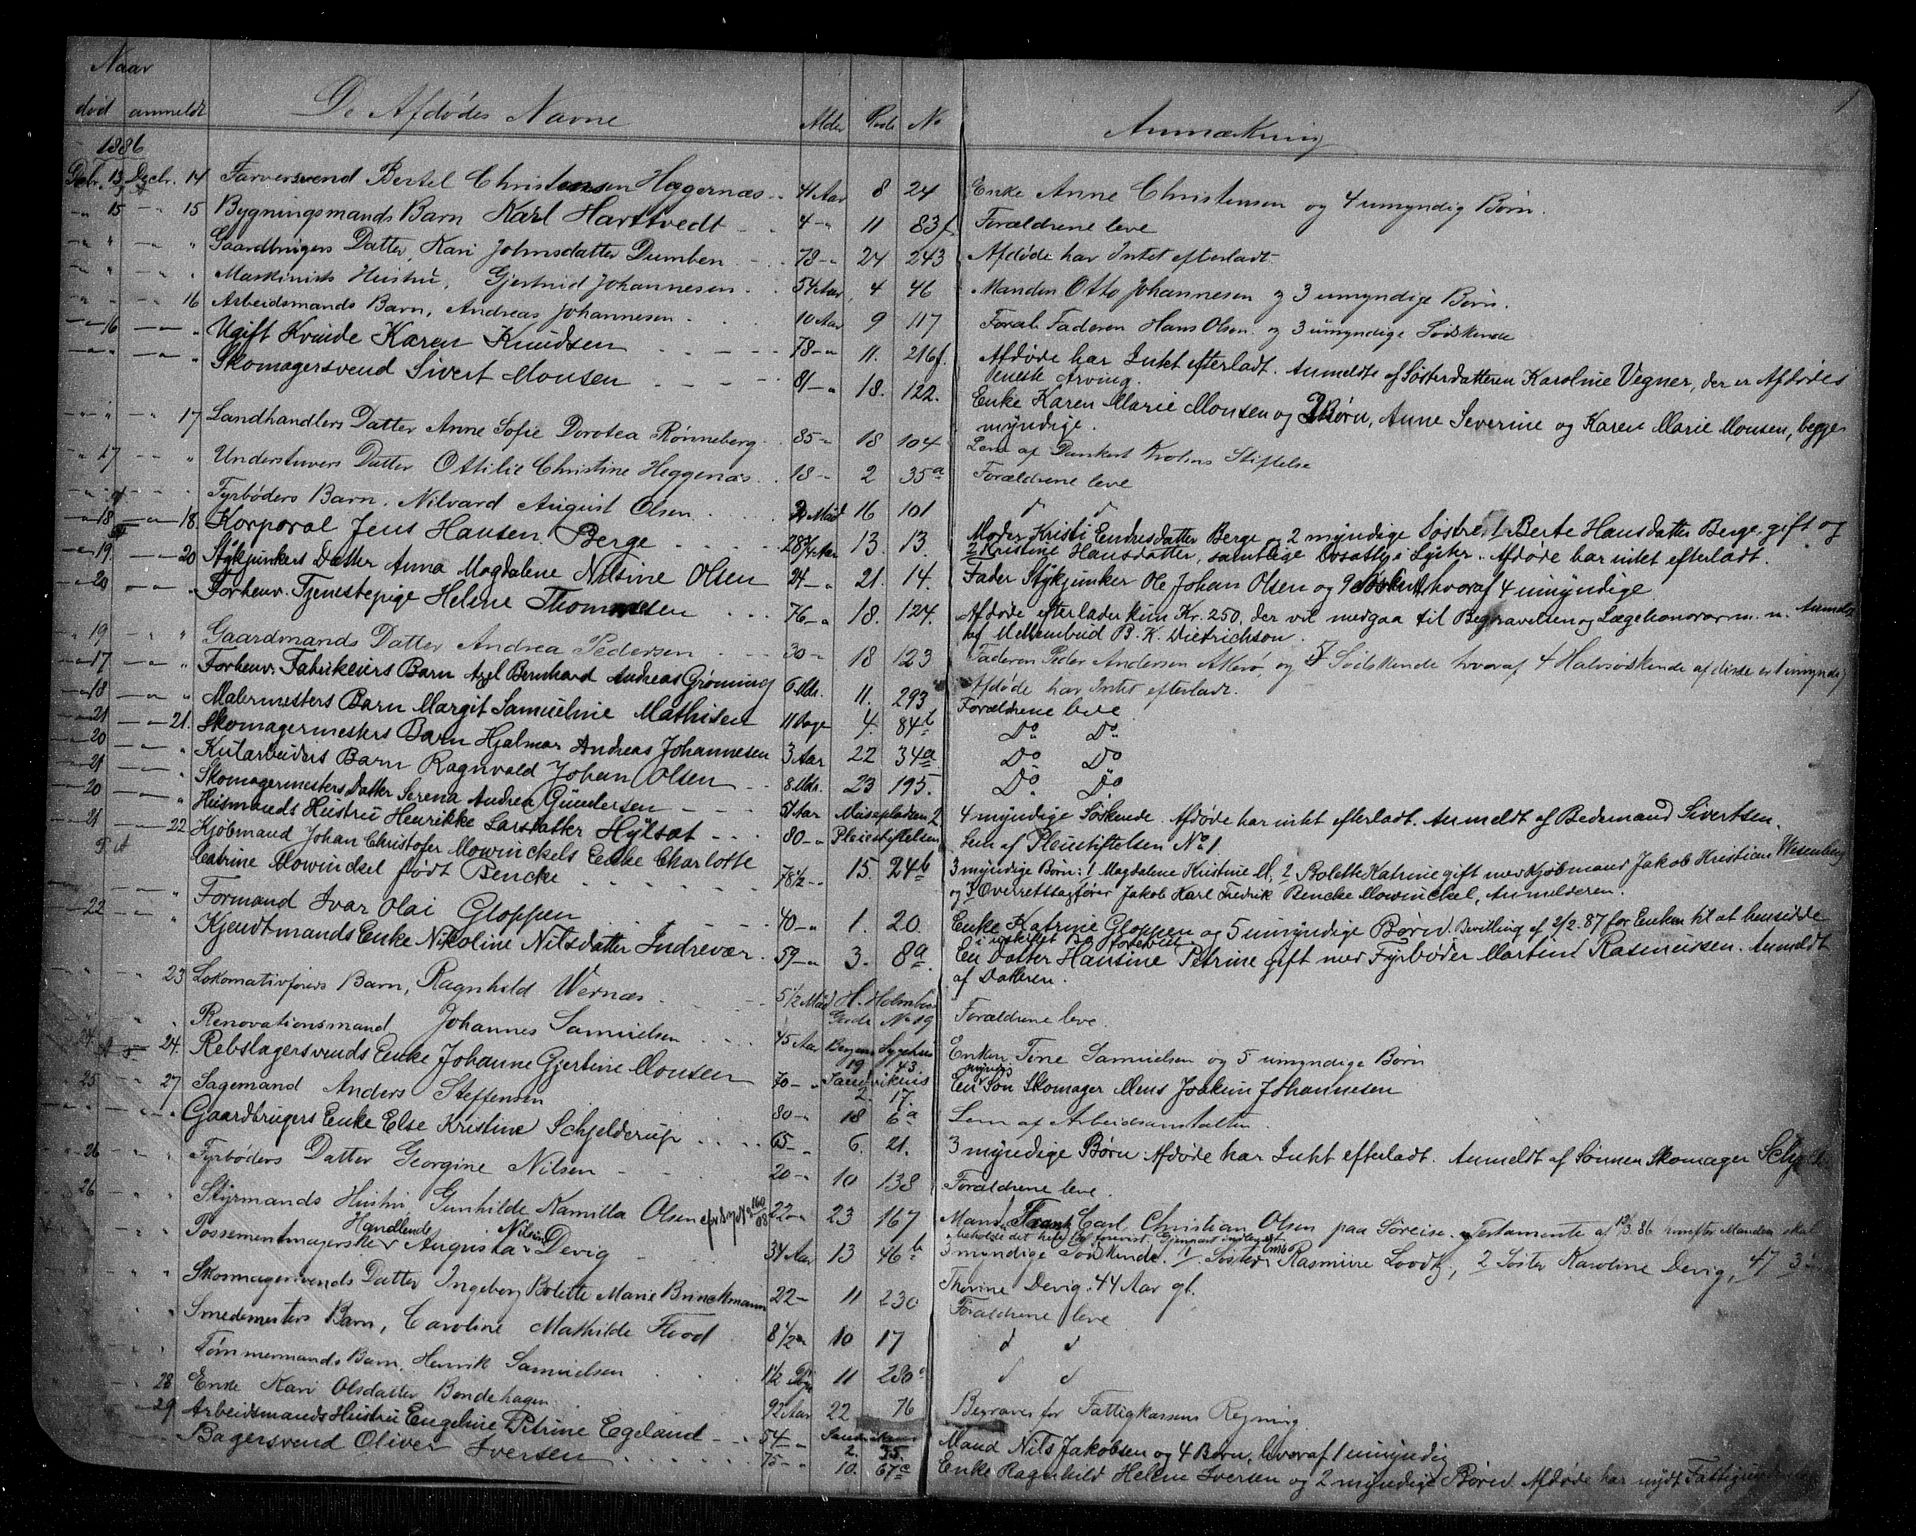 1
Naar
død anmeldt De Afdødes Navne Alder Rode No Anmærkning
1886
Decbr. 13 Decbr. 14 Farversvend Bertel Christensen Heggernæs 41 Aar 8 24 Enke Anne Christensen og 4 umyndig Børn.
" 15 — " 15 Bygningsmands Barn Karl Harttvedt 4 — " 11 83f Forældrene leve
" " — " " Gaardbrugers Datter, Kari Johnsdatter Dumben 78 — " 24 243 Afdøde har Intet efterladt
" " — " " Maskinists Hustru, Gjertrud Johannesen 54 Aar 4 46 Manden Otto Johannesen og 3 umyndige Børn.
" " — " 16 Arbeidsmands Barn, Andreas Johannesen 10 Aar 9 117 Foræld. Faderen Hans Olsen og 3 umyndige Sødskende
— " 16 — " Ugift Kvinde Karen Knudsen 78 — " 11. 216f. Afdøde har Intet efterladt. Anmeldt af Søsterdatteren Karoline Vegner, der er Afdødes
eneste Arving.
— " — " Skomagersvend Sivert Monsen 81 — " 18. 122. Enke Karen Marie Monsen og 2 Børn, Anne Severine og Karen Marie Monsen, begge
myndige.
" " — " 17 Landhandlers Datter Anne Sofie Dorotea Rønneberg 85 — " 18 104 Lem af Dankert Krohns Stiftelse
" 17 " Understuvers Datter Ottilie Christine Heggenæs 18 — " 2 35a Forældrene leve
Fyrbøders Barn. Nilvard August Olsen 2 Mdd 16 101 d d
— " 18 — " — 18. Korporal Jens Hansen Berge 28 Aar 13. 13. Moder Kristi Endresdatter Berge og 2 myndige Søstre, 1 Berte Hansdatter Berge, gift og
2 Kristine Hansdatter, samtlige bosatte i Lyster. Afdøde har intet efterladt.
— " 19 — " — 20 Stykjunkers Datter Anna Magdalene Nilsine Olsen 24 — " 21. 14. Fader Stykjunker Ole Johan Olsen og 9 Søskende hvoraf 4 umyndige
— " 20 — " — " Forhenv. Tjenestepige Helene Thommesen 76 — " 18. 124. Afdøde efterlader kun Kr. 250, der vil medgaa til Begravelsen og Lægehonorar m. m. Anmeldt
af Mellembud B. K. Dietrichson.
" 19 — " " Gaardmands Datter Andrea Pedersen 30 — " 18 123 Faderen Peder Andersen Akerø, og 5 Sødskende hvoraf 4 Halvsøskende af disse er 1 umyndig
Afdøde har Intet efterladt.
— " 17 — " — " Forhenv. Fabrikeiers Barn Axel Bernhard Andreas Grøning 6 Mdr. 11. 293 Forældrene leve
— " 18 — " — " Malermesters Barn Margit Samueline Mathisen 11 Dage 4. 84b Do Do
— " 21 — " — 21. Skomagermesters Barn Hjalmar Andreas Johannesen 3 Aar 22 34a Do Do
— " 20 — " — " Kularbeiders Barn Ragnvald Johan Olsen 8 Mdr. 23 195. Do Do
— " 21 — " — " Skomagermesters Datter Serena Andrea Gundersen 51 Aar Møllepladsen 2 4 myndige Søskende. Afdøde har intet efterladt. Anmeldt af Bedemand Sivertsen.
— " 20 — " — " Husmands Hustru Henrikke Larsdatter Hylsæt 80 — " Pleiestiftelsen Lem af Pleiestiftelsen No 1
— " 21 — " — 22 Kjøbmand Johan Christofer Mowinckels Enke Charlotte
Catrine Mowinckel født Bencke 78 1/2 — " 15. 24b 3 myndige Børn: 1 Magdalene Kristine M, 2 Bolette Katrine gift med Kjøbmand Jakob Kristian Wesenberg
og 3 Overretssagfører Jakob Karl Fredrik Bencke Mowinckel, Anmelderen.
" Formand Ivar Olai Gloppen 40 — " 1. 20. Enke Katrine Gloppen og 5 umyndige Børn. Bevilling af 2/2. 87 for Enken til at hensidde
i uskiftet Bo forevist
— " 22 — " — " Kjendtmands Enke Nikoline Nilsdatter Indrevær 59 — " 3. 8a. En Datter Hansine Petrine gift med Fyrbøder Martin Rasmussen. Anmeldt
af Datteren.
" " 23 Lokomativførers Barn, Ragnhild Wernæs 5 1/2 Mdd H. Holmboes Gade No 19 Forældrene leve.
" " " Renovationsmand Johannes Samuelsen 45 Aar Bergens Sygehus 19 43. Enken Tine Samuelsen og 5 umyndige Børn
24. — " 24. Rebslagersvends Enke Johanne Gjertine Monsen 70 — " Sandvikens 2. 17. En myndig Søn Skomager Mons Joakim Johannesen
" 25 " 27 Sagemand Anders Steffensen 80 — " 18 6a Lem af Arbeidsanstalten.
— " — " — " Gaardbrugers Enke Else Kristine Schjelderup 65 — " 6. 21. 3 myndige Børn. Afdøde har Intet efterladt. Anmeldt af Sønnen Skomager
" 26 " " Fyrbøders Datter Georgine Nilsen 20 — " 10 138 Forældrene leve.
" 26 " " Styrmands Hustru, Gunhilde Kamilla Olsen 22 — " 23 167 Mand Carl Christian Olsen paa Søreise. Testamente af 12/3. 86 hvorefter Manden skal
beholde det hele Bo forevist. Gjenpart indlagt
" " " Possementmagerske, Handlende Augusta Nilsine Devig 34 Aar 13 46b 3 myndige Sødskende. 1 Søster Rasmine Loodtz, 2 Søster Karoline Devig, 47 3
Thorine Devig. 44 Aar gl.
" Skomagersvends Datter Ingeborg Bolette Marie Brinckmann 22 — 11 230 Forældrene leve
" Smedemesters Barn, Caroline Mathilde Flood 8 1/2 " 10 17 d d
" Tømmermands Barn, Henrik Samuelsen 1 1/2 Dage 11 230 d d
" 28 Enke Kari Olsdatter Bondehagen 92 Aar 22 76 Begraves for Fattigkassens Regning.
" 29 Arbeidsmands Hustru Engeline Petrine Egeland 54 — " Sandviken 2. 35 Mand Nils Jakobsen og 4 Børn, hvoraf 1 umyndig
— " — " Bagersvend Oliver Iversen 75 — " 10. 67c Enke Ragnhild Helene Iversen og 2 myndige Børn. Afdøde har nydt